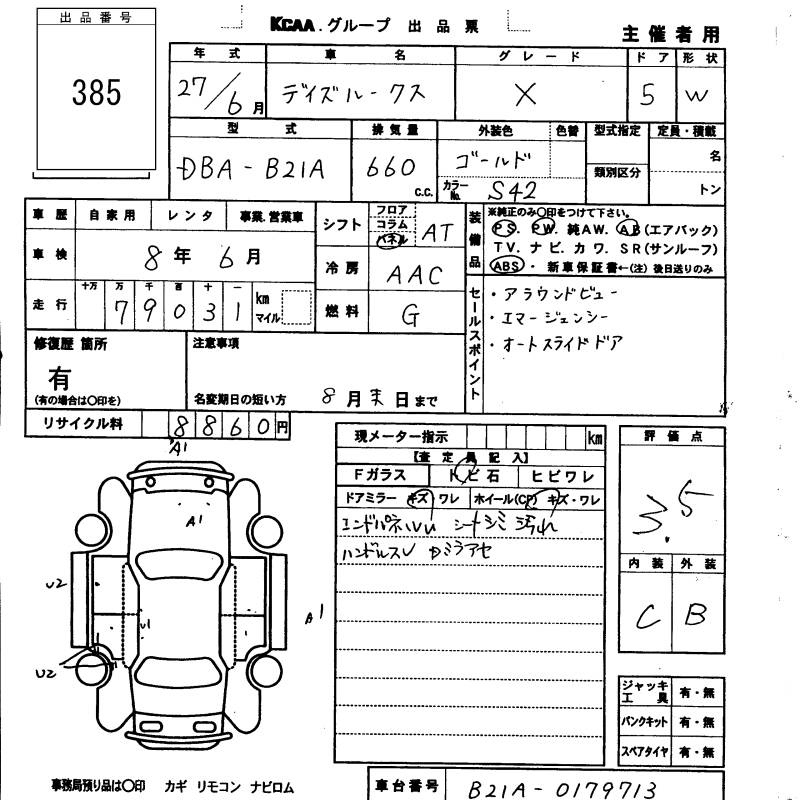 出品番号
385
KCAA.グループ 出品票
主催者用
年式 車名 グレード ドア 形状
27/6月 デイズルークス X 5 W
型式 排気量 外装色 色替 型式指定 定員・積載
DBA-B21A 660 c.c. ゴールド 類別区分 名
カラーNo. S42 トン
車歴 自家用 レンタ 事業.営業車
シフト フロア コラム パネル AT
装備品 ※純正のみ〇印をつけて下さい。
PS. PW. 純AW. AB(エアバック)
TV. ナビ. カワ. SR(サンルーフ)
ABS・ 新車保証書←(注) 後日送りのみ
車検 8年 6月
冷房 AAC
走行 十万 万 千 百 十 一
79031 km マイル
燃料 G
セールスポイント
・アラウンドビュー
・エマージェンシー
・オートスライドドア
修復歴 箇所
有
(有の場合は〇印を)
注意事項
名変期日の短い方 8月末日まで
リサイクル料 8860円
現メーター指示 km
【査定員記入】
Fガラス トビ石 ヒビワレ
ドアミラー キズ・ワレ ホイール(CP) キズ・ワレ
エンドパネルUU シートシミ 汚れ
ハンドルスレ
評価点
3.5
内装 外装
C B
A1
A1
U2
U1
A1
U2
ジャッキ工具 有・無
パンクキット 有・無
スペアタイヤ 有・無
事務局預り品は〇印 カギ リモコン ナビロム
車台番号 B21A-0179713